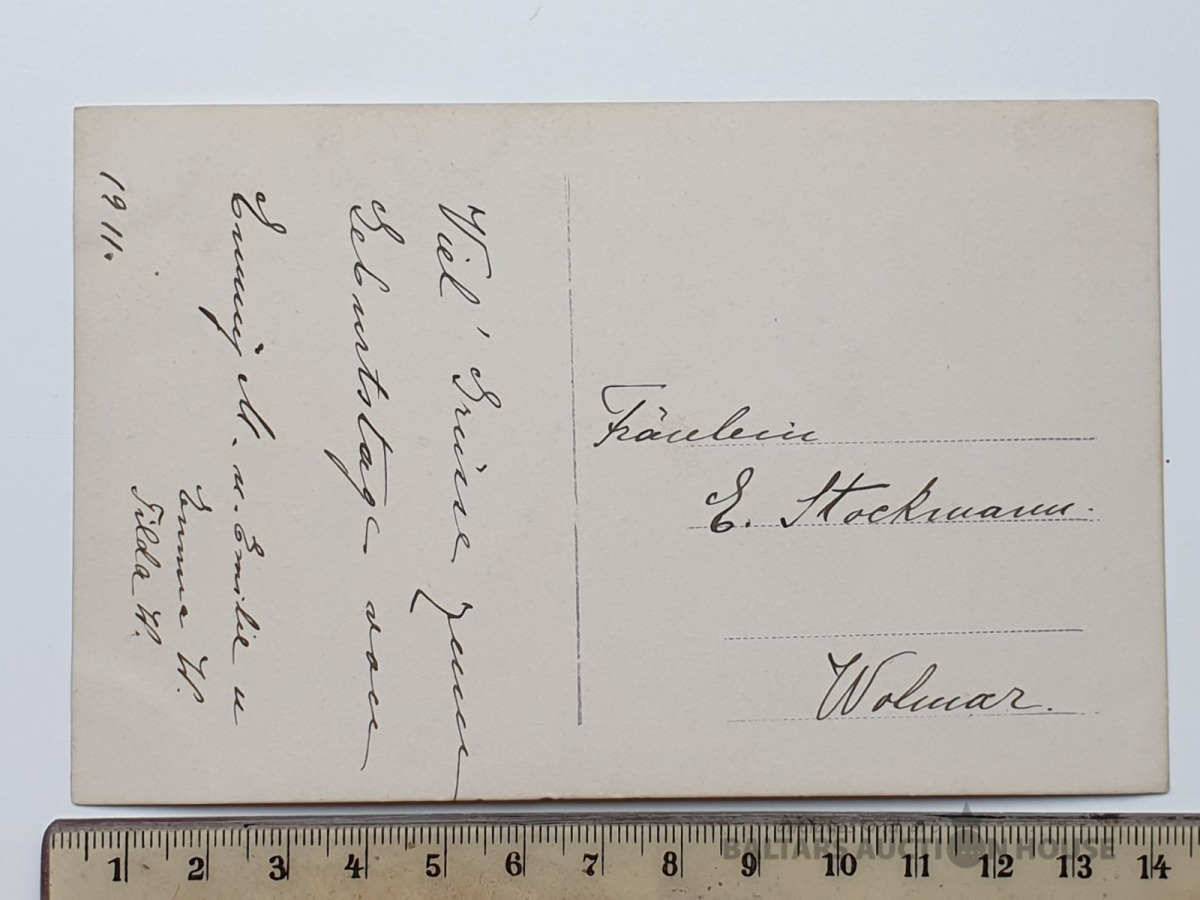 Viel' Grüsse zum
Geburtstage von
Emmy M. u. Emilie u
Emma W.
Tilda W.
1911.
Fräulein
E. Stockmann.
Wolmar.
1 2 3 4 5 6 7 8 9 10 11 12 13 14
BALTARS AUCTION HOUSE